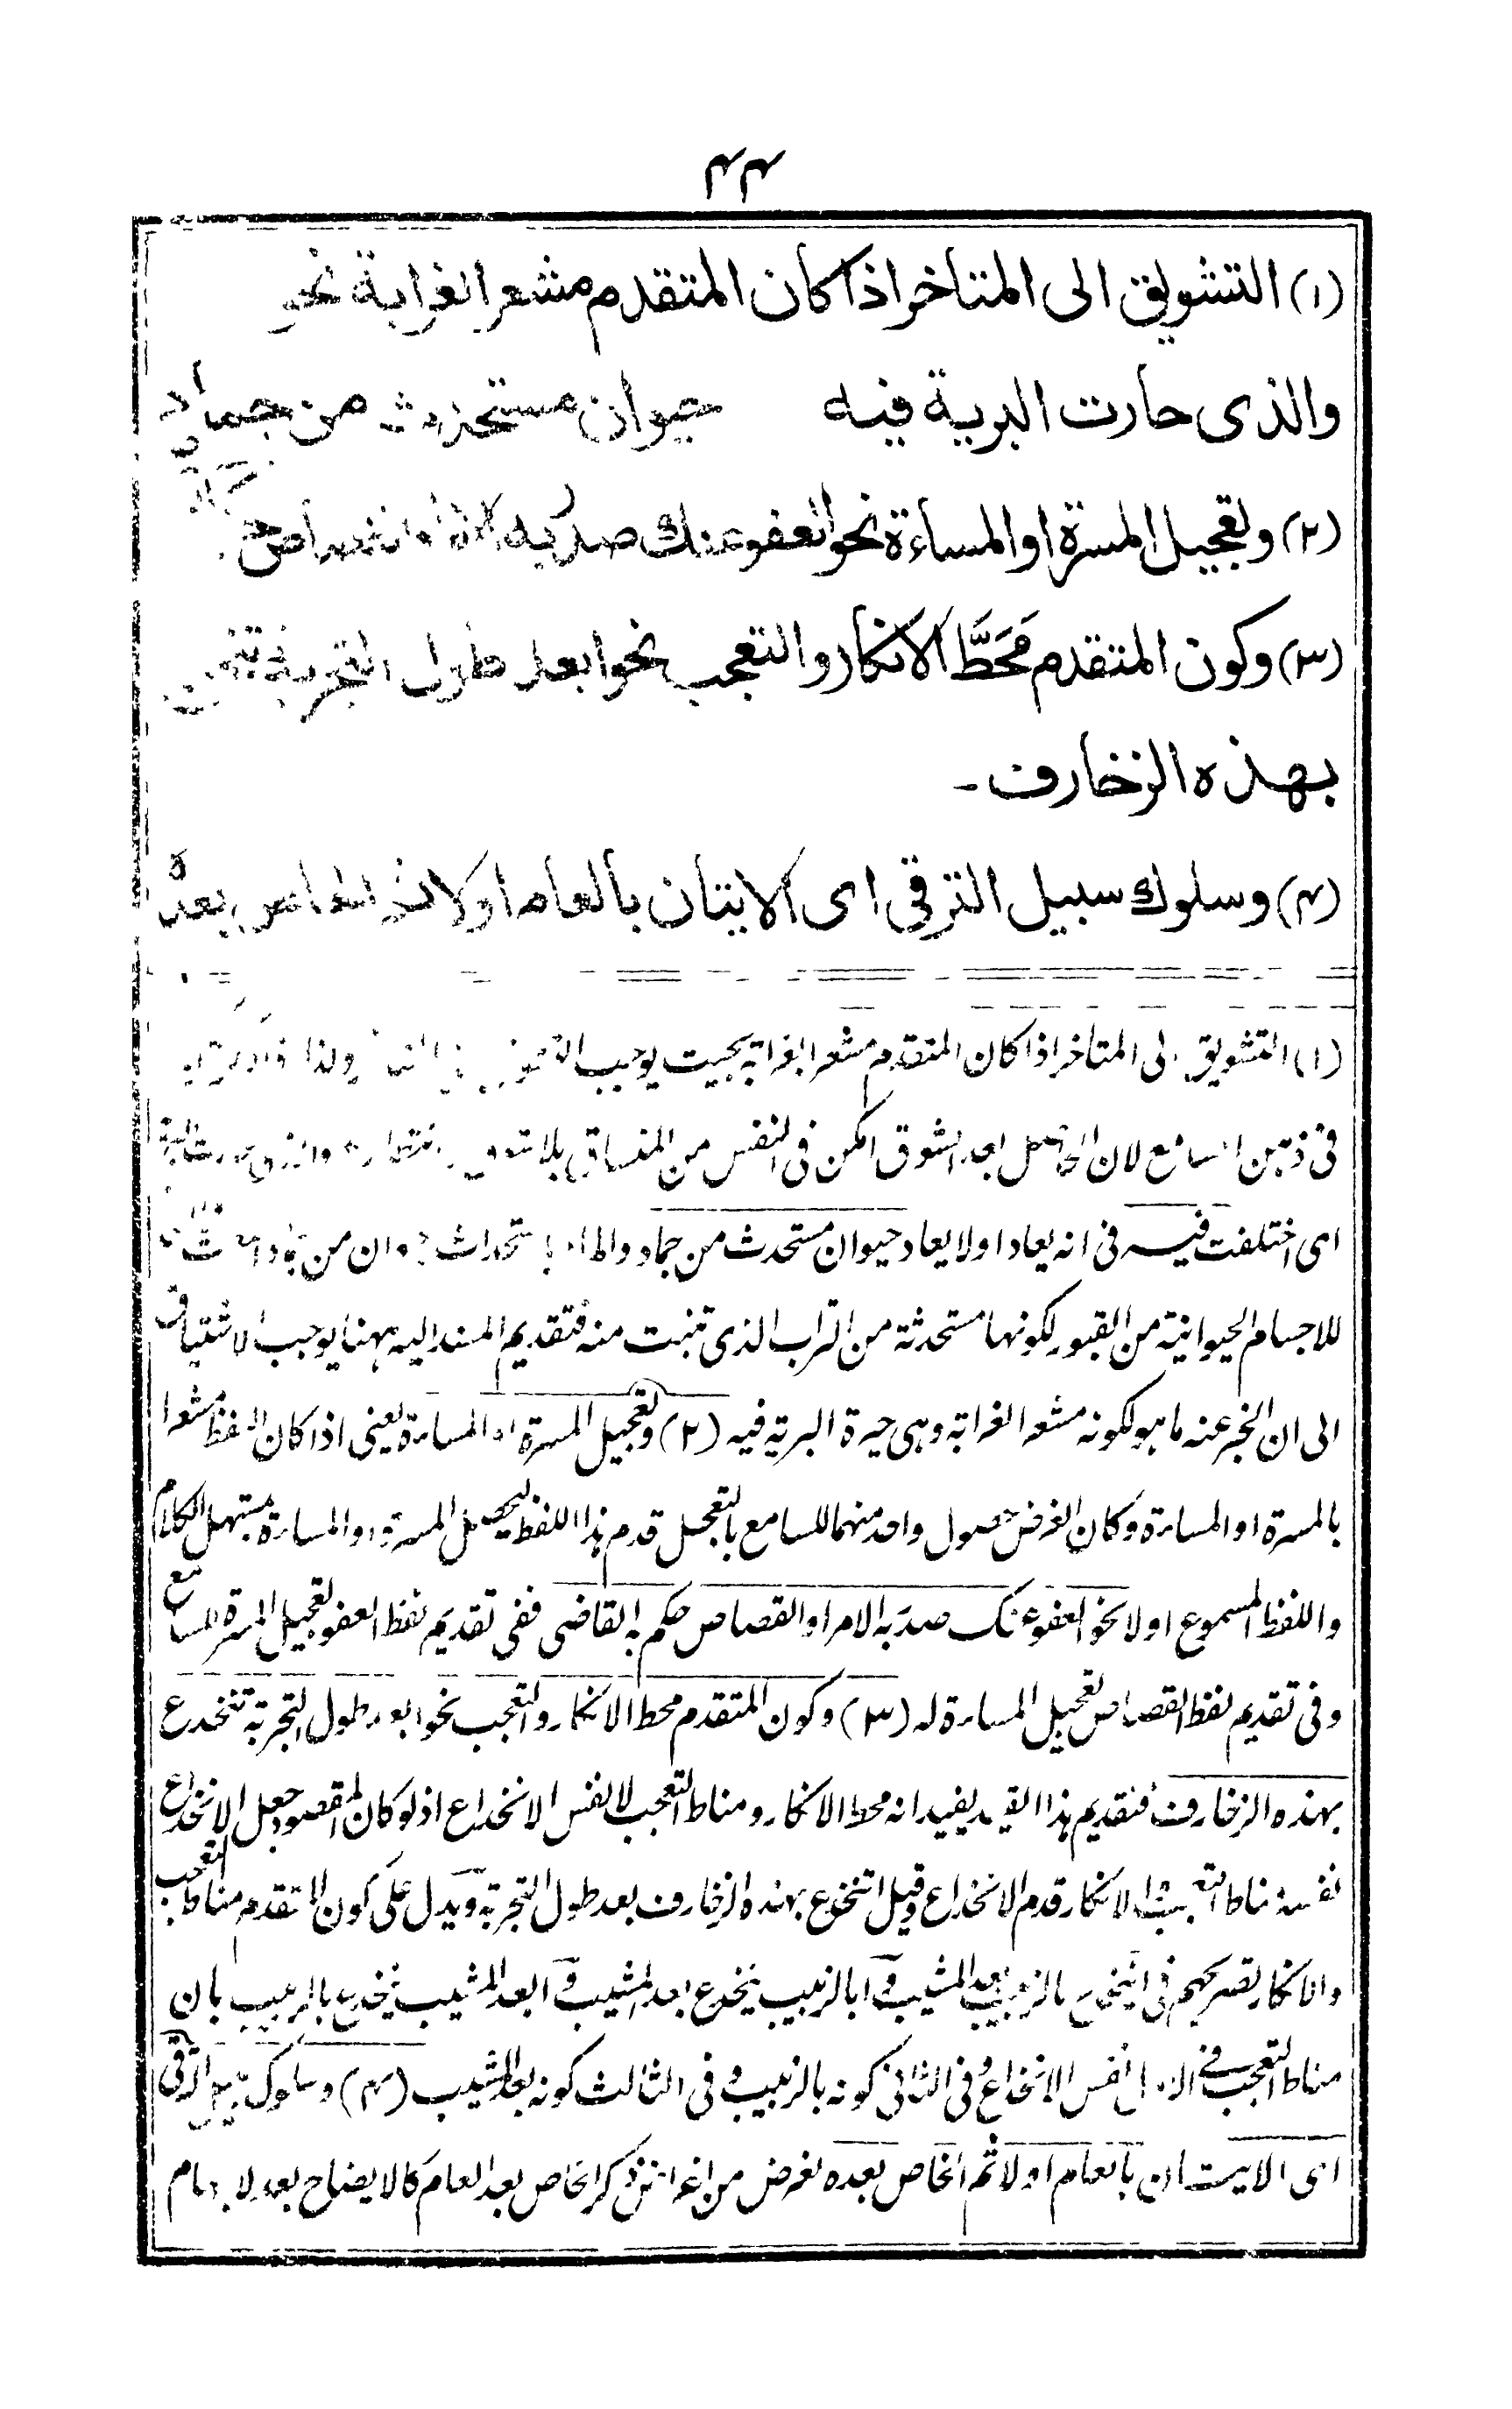 ۴۴
(١) التشويق الى المتاخر اذا كان المتقدم مشعرا بغرابة نحو
والذى حارت البرية فيه حيوان مستحدث من جماد
(٢) وتعجيل المسرة او المساءة نحو العفو عنك صدر به الامر او القصاص
(٣) وكون المتقدم مَحَطَّ الانكار والتعجب نحو ابعد طول التجربة تنخدع
بهذه الزخارف ـ
(۴) وسلوك سبيل الترقى اى الاتيان بالعام اولا ثم الخاص بعده
(١) التشويق الى المتاخر اذا كان المتقدم مشعرا بغرابة بحيث يوجب ولذا
فى ذهن السامع لان الحاصل بعد الشوق امكن فى النفس من المنساق بلا
اى اختلفت فيه فى انه يعاد اولا يعاد حيوان مستحدث من جماد والمراد باستحداث من
للاجسام الحيوانية من القبور لكونها مستحدثة من التراب الذى تنبت منه فتقديم المسند اليه ههنا يوجب الاشتياق
الى ان الخبر عنه ما هو لكونه مشعرا بغرابة وهى حيرة البرية فيه (٢) وتعجيل المسرة او المساءة يعنى اذا كان اللفظ مشعرا
بالمسرة او المساءة وكان الغرض حصول واحد منهما للسامع بالتعجيل قدم هذا اللفظ ليحصل المسرة او المساءة مبتهل الكلام
واللفظ المسموع اولا نحو العفو عنك صدر به الامر او القصاص حكم به القاضى ففى تقديم لفظ العفو تعجيل المسرة للسامع
وفى تقديم لفظ القصاص تعجيل المساءة له (٣) وكون المتقدم محط الانكار والتعجب نحو ابعد طول التجربة تنخدع
بهذه الزخارف فتقديم هذا القيد يفيد انه محط الانكار ومناط التعجب لا نفس الانخداع اذ لو كان المقصود جعل الانخداع
نفسه مناط التعجب والانكار قدم الانخداع وقيل اتنخدع بهذه الزخارف بعد طول التجربة ويدل على كون المتقدم مناط التعجب
والانكار تصريحهم فى اينخدع بالزبيب بعد المشيب وفى ابالزبيب ينخدع بعد المشيب وفى ابعد المشيب ينخدع بالزبيب بان
مناط التعجب فى الاول نفس الانخداع وفى الثانى كونه بالزبيب وفى الثالث كونه بعد المشيب (۴) وسلوك سبيل الترقى
اى الاتيان بالعام اولا ثم الخاص بعده لغرض من اغراض ذكر الخاص بعد العام كالايضاح بعد الابهام